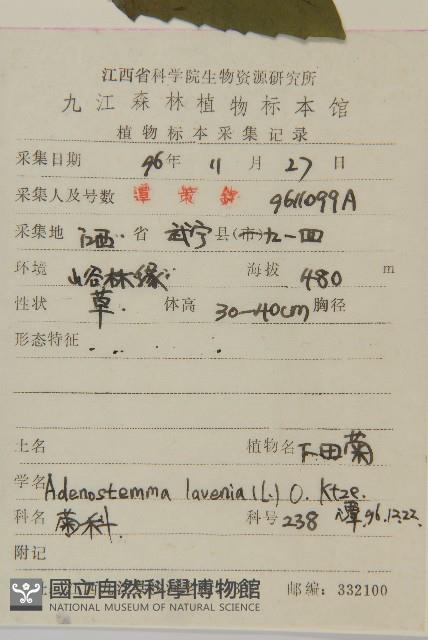 江西省科学院生物资源研究所
九江森林植物标本馆
植物标本采集记录
采集日期 96年 11 月 27 日
采集人及号数 譚策銘 9611099A
采集地 江西.省 武宁县(市)九一四
环境 山谷林缘 海拔 480 m
性状 草. 体高 30-40cm 胸径
形态特征
土名 植物名 下田菊
学名 Adenostemma lavenia (L.) O. Ktze.
科名 菊科. 科号 238 谭96.12.22.
附记
國立自然科學博物館 邮编: 332100
NATIONAL MUSEUM OF NATURAL SCIENCE